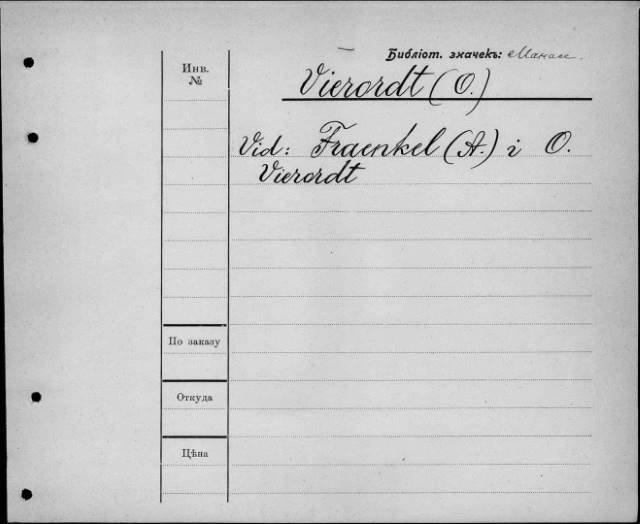 Библіот. значекъ: Манас.
Инв. №
Vierordt (O.)
Vid: Fraenkel (A.) i O.
Vierordt
По заказу
Откуда
Цѣна